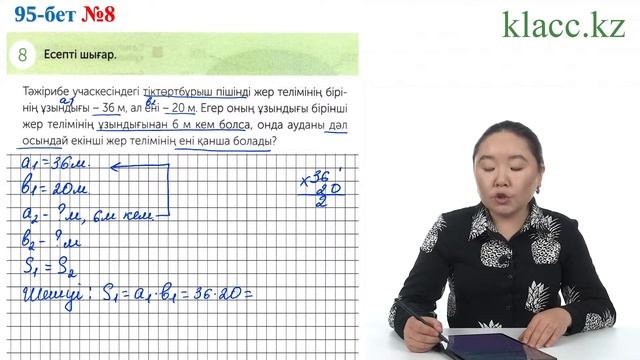 95-бет №8
klacc.kz
8 Есепті шығар.
Тәжірибе учаскесіндегі тіктөртбұрыш пішінді жер телімінің бірі-
a1 b1
нің ұзындығы – 36 м, ал ені – 20 м. Егер оның ұзындығы бірінші
жер телімінің ұзындығынан 6 м кем болса, онда ауданы дәл
осындай екінші жер телімінің ені қанша болады?
a1 = 36 м.
b1 = 20 м
a2 - ? м, 6 м кем.
b2 - ? м
S1 = S2
Шешуі: S1 = a1 · b1 = 36 · 20 =
1
× 36
20
2